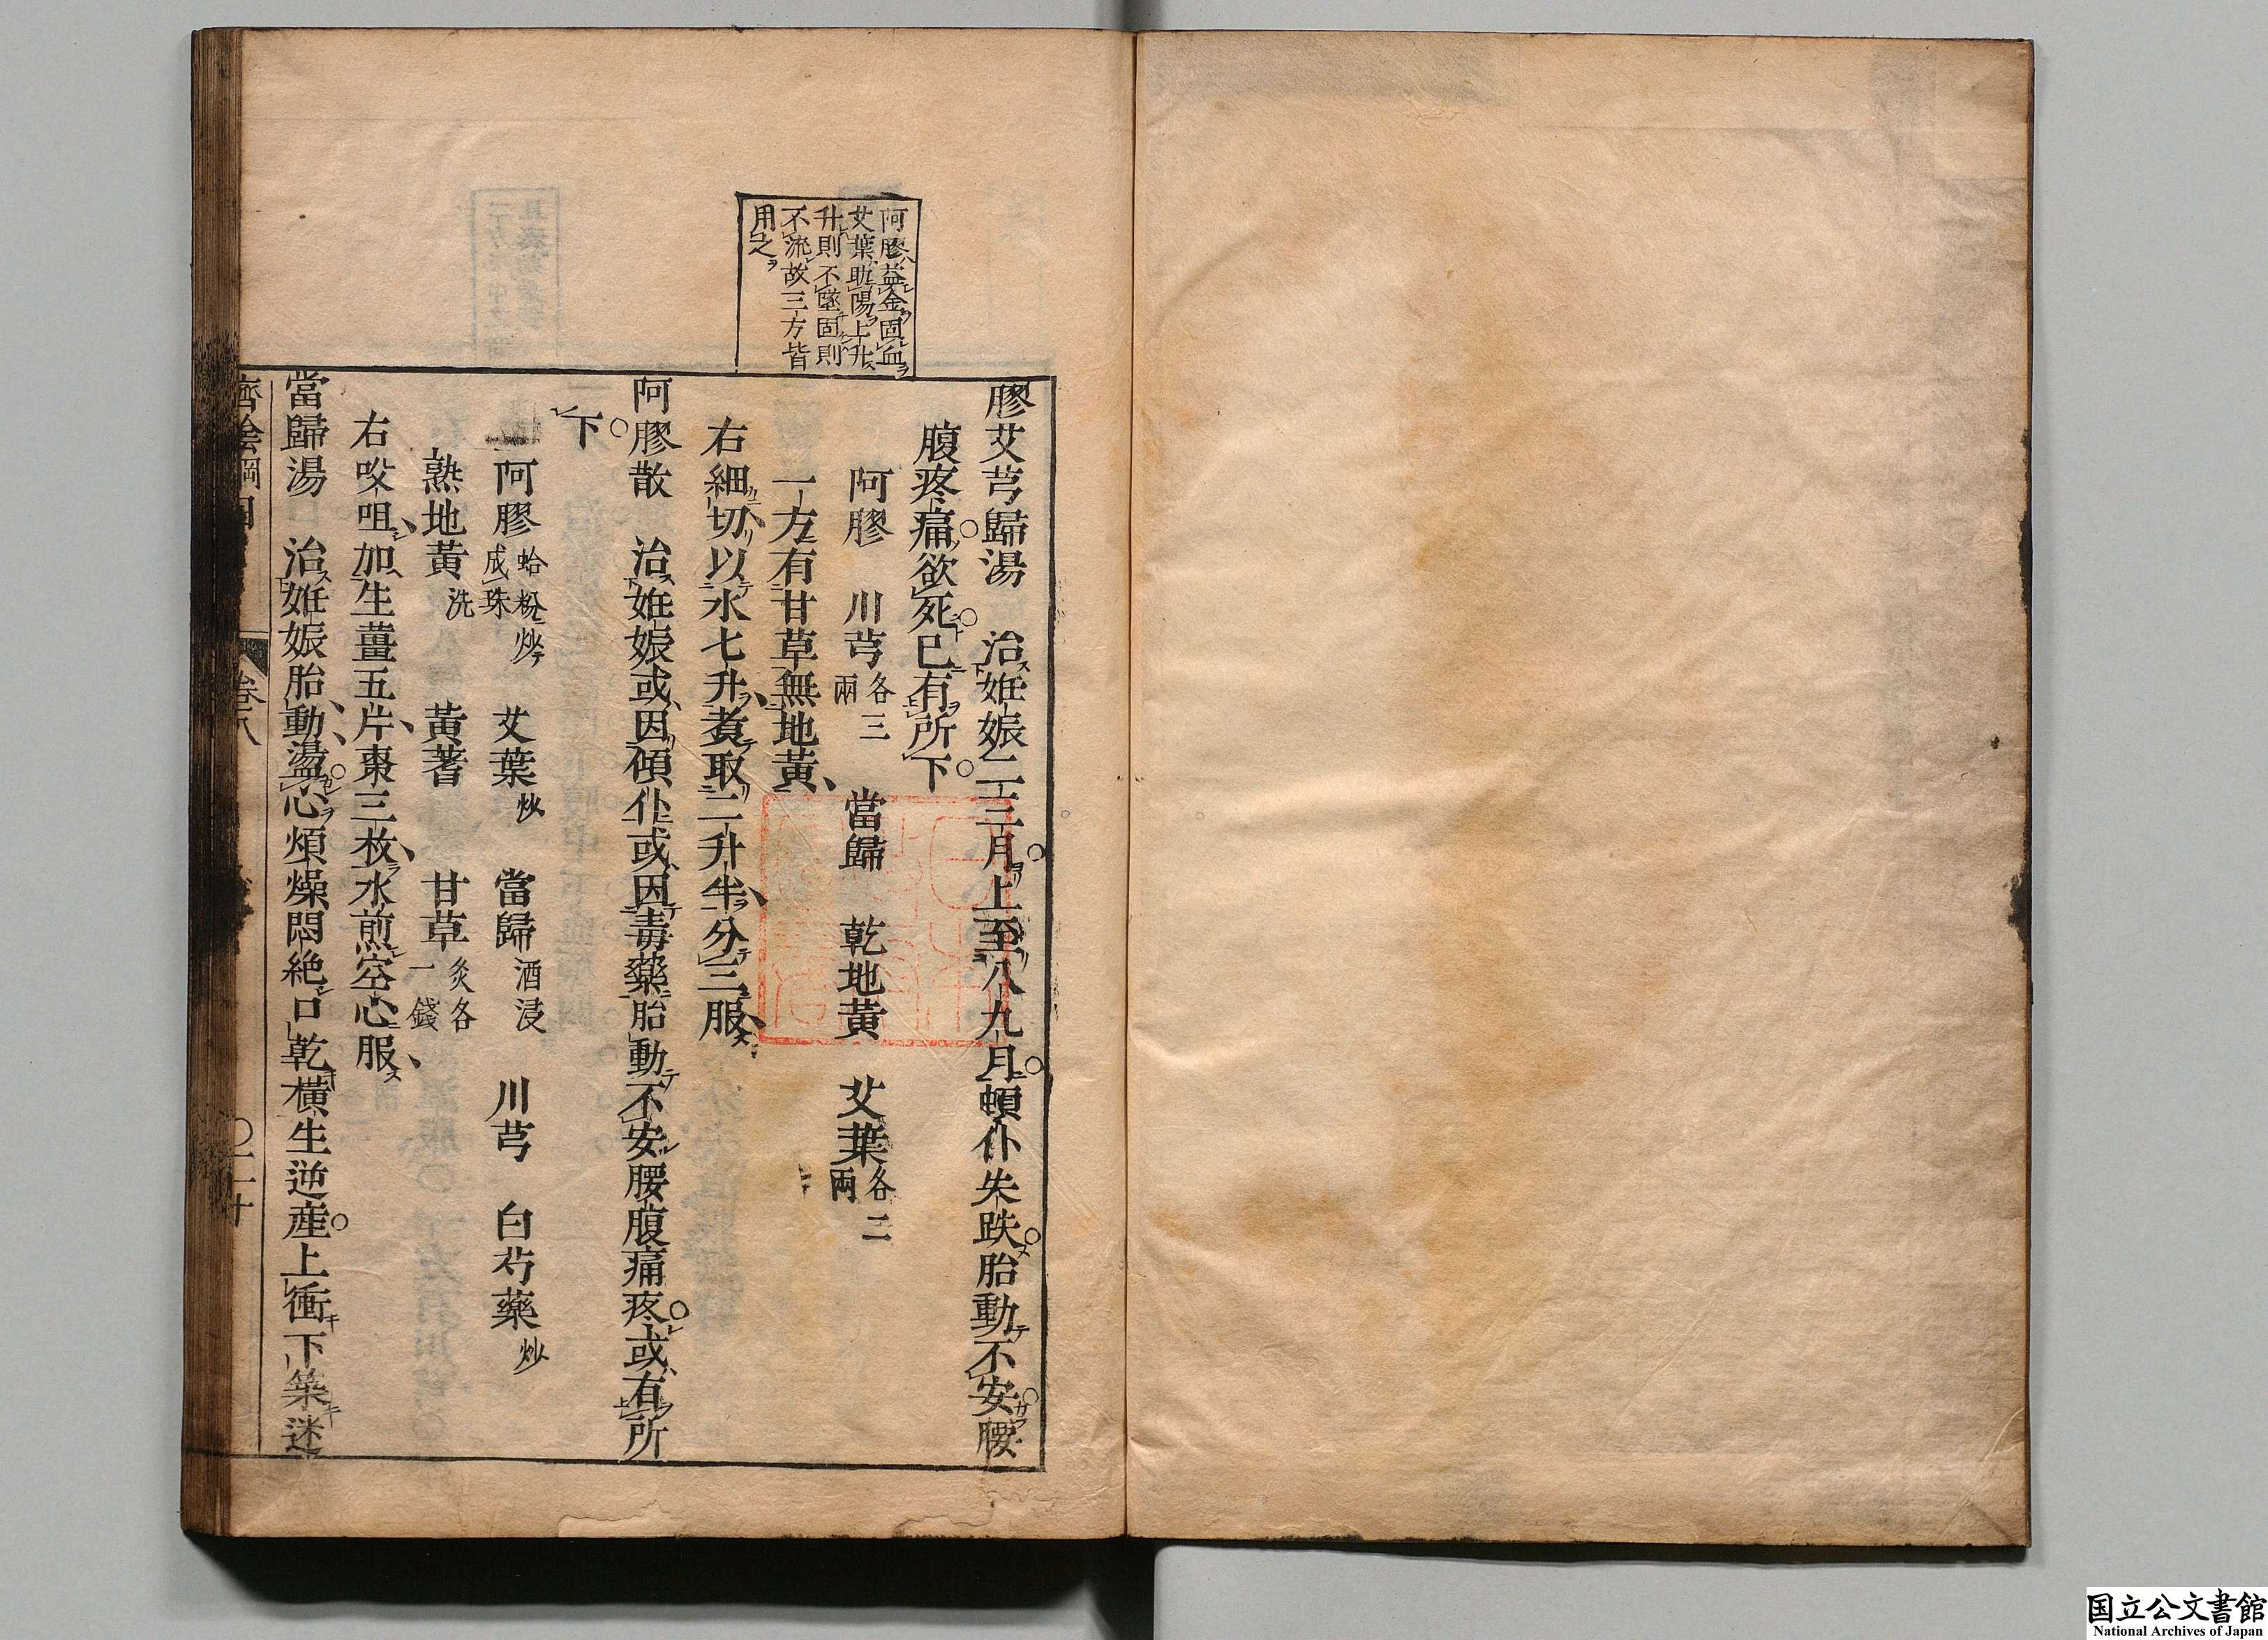 阿膠益金固血
艾葉助陽上升
升則不墜固則
不流故三方皆
用之
膠艾芎歸湯　治妊娠二三月上至八九月頓仆失跌胎動不安腰
腹疼痛欲死已有所下
阿膠　川芎各三兩　當歸　乾地黃　艾葉各二兩
一方有甘草無地黃
右細切以水七升煮取二升半分三服
阿膠散　治妊娠或因傾仆或因毒藥胎動不安腰腹痛疼或有所
下
阿膠蛤粉炒成珠　艾葉炒　當歸酒浸　川芎　白芍藥炒
熟地黃洗　黃蓍　甘草炙各一錢
右㕮咀加生薑五片棗三枚水煎空心服
當歸湯　治妊娠胎動盪心煩燥悶絶口乾橫生逆產上衝下築迷
濟陰綱目
卷八
国立公文書館
National Archives of Japan